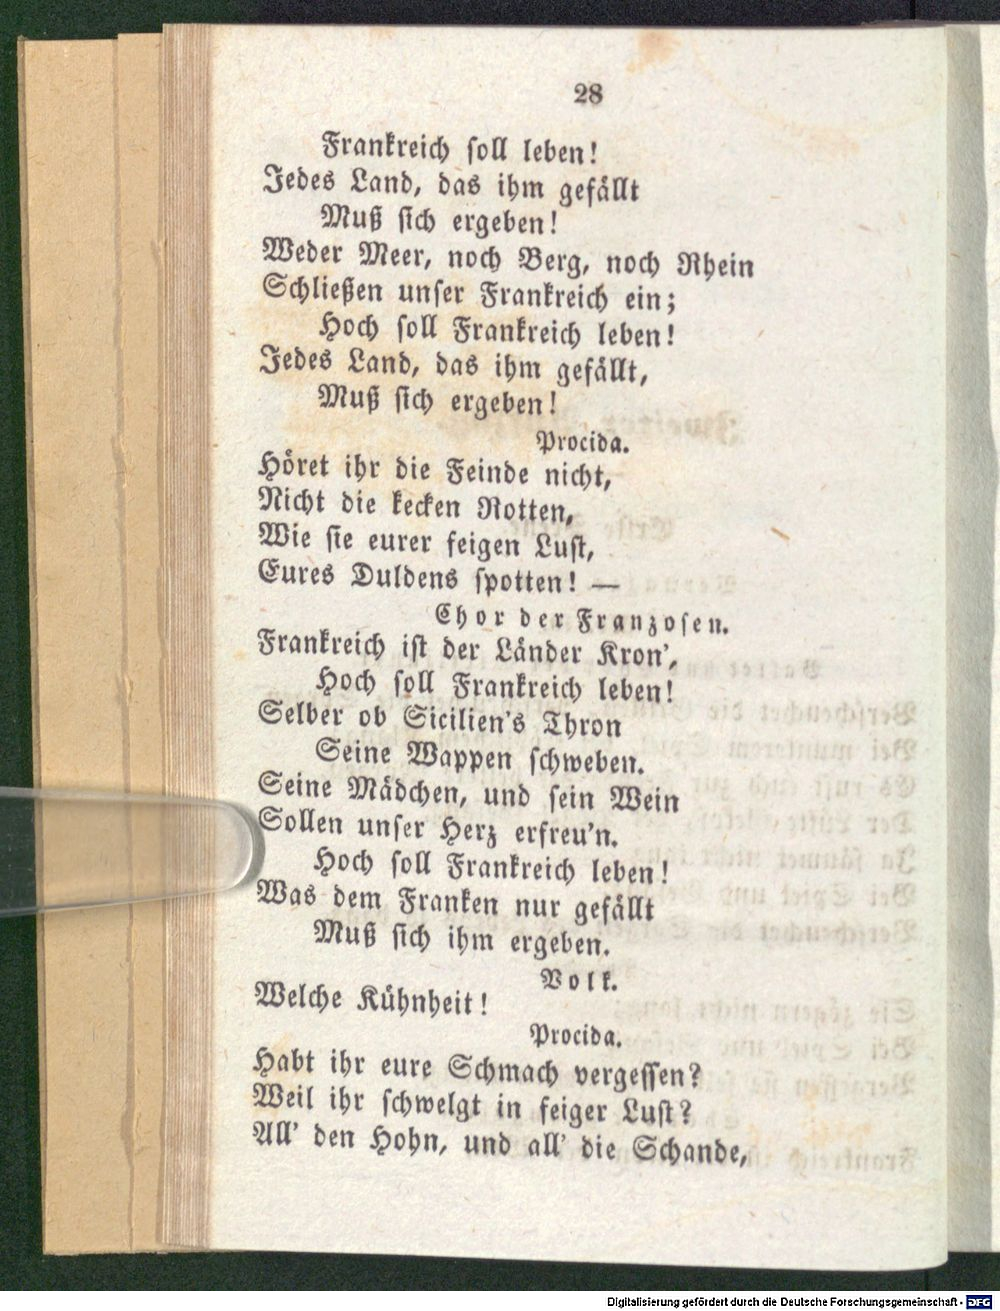 28
Frankreich soll leben!
Jedes Land, das ihm gefällt
Muß sich ergeben!
Weder Meer, noch Berg, noch Rhein
Schließen unser Frankreich ein;
Hoch soll Frankreich leben!
Jedes Land, das ihm gefällt,
Muß sich ergeben!
Procida.
Höret ihr die Feinde nicht,
Nicht die kecken Rotten,
Wie sie eurer feigen Lust,
Eures Duldens spotten! —
Chor der Franzosen.
Frankreich ist der Länder Kron',
Hoch soll Frankreich leben!
Selber ob Sicilien's Thron
Seine Wappen schweben.
Seine Mädchen, und sein Wein
Sollen unser Herz erfreu'n.
Hoch soll Frankreich leben!
Was dem Franken nur gefällt
Muß sich ihm ergeben.
Volk.
Welche Kühnheit!
Procida.
Habt ihr eure Schmach vergessen?
Weil ihr schwelgt in feiger Lust?
All' den Hohn, und all' die Schande,
Digitalisierung gefördert durch die Deutsche Forschungsgemeinschaft - DFG